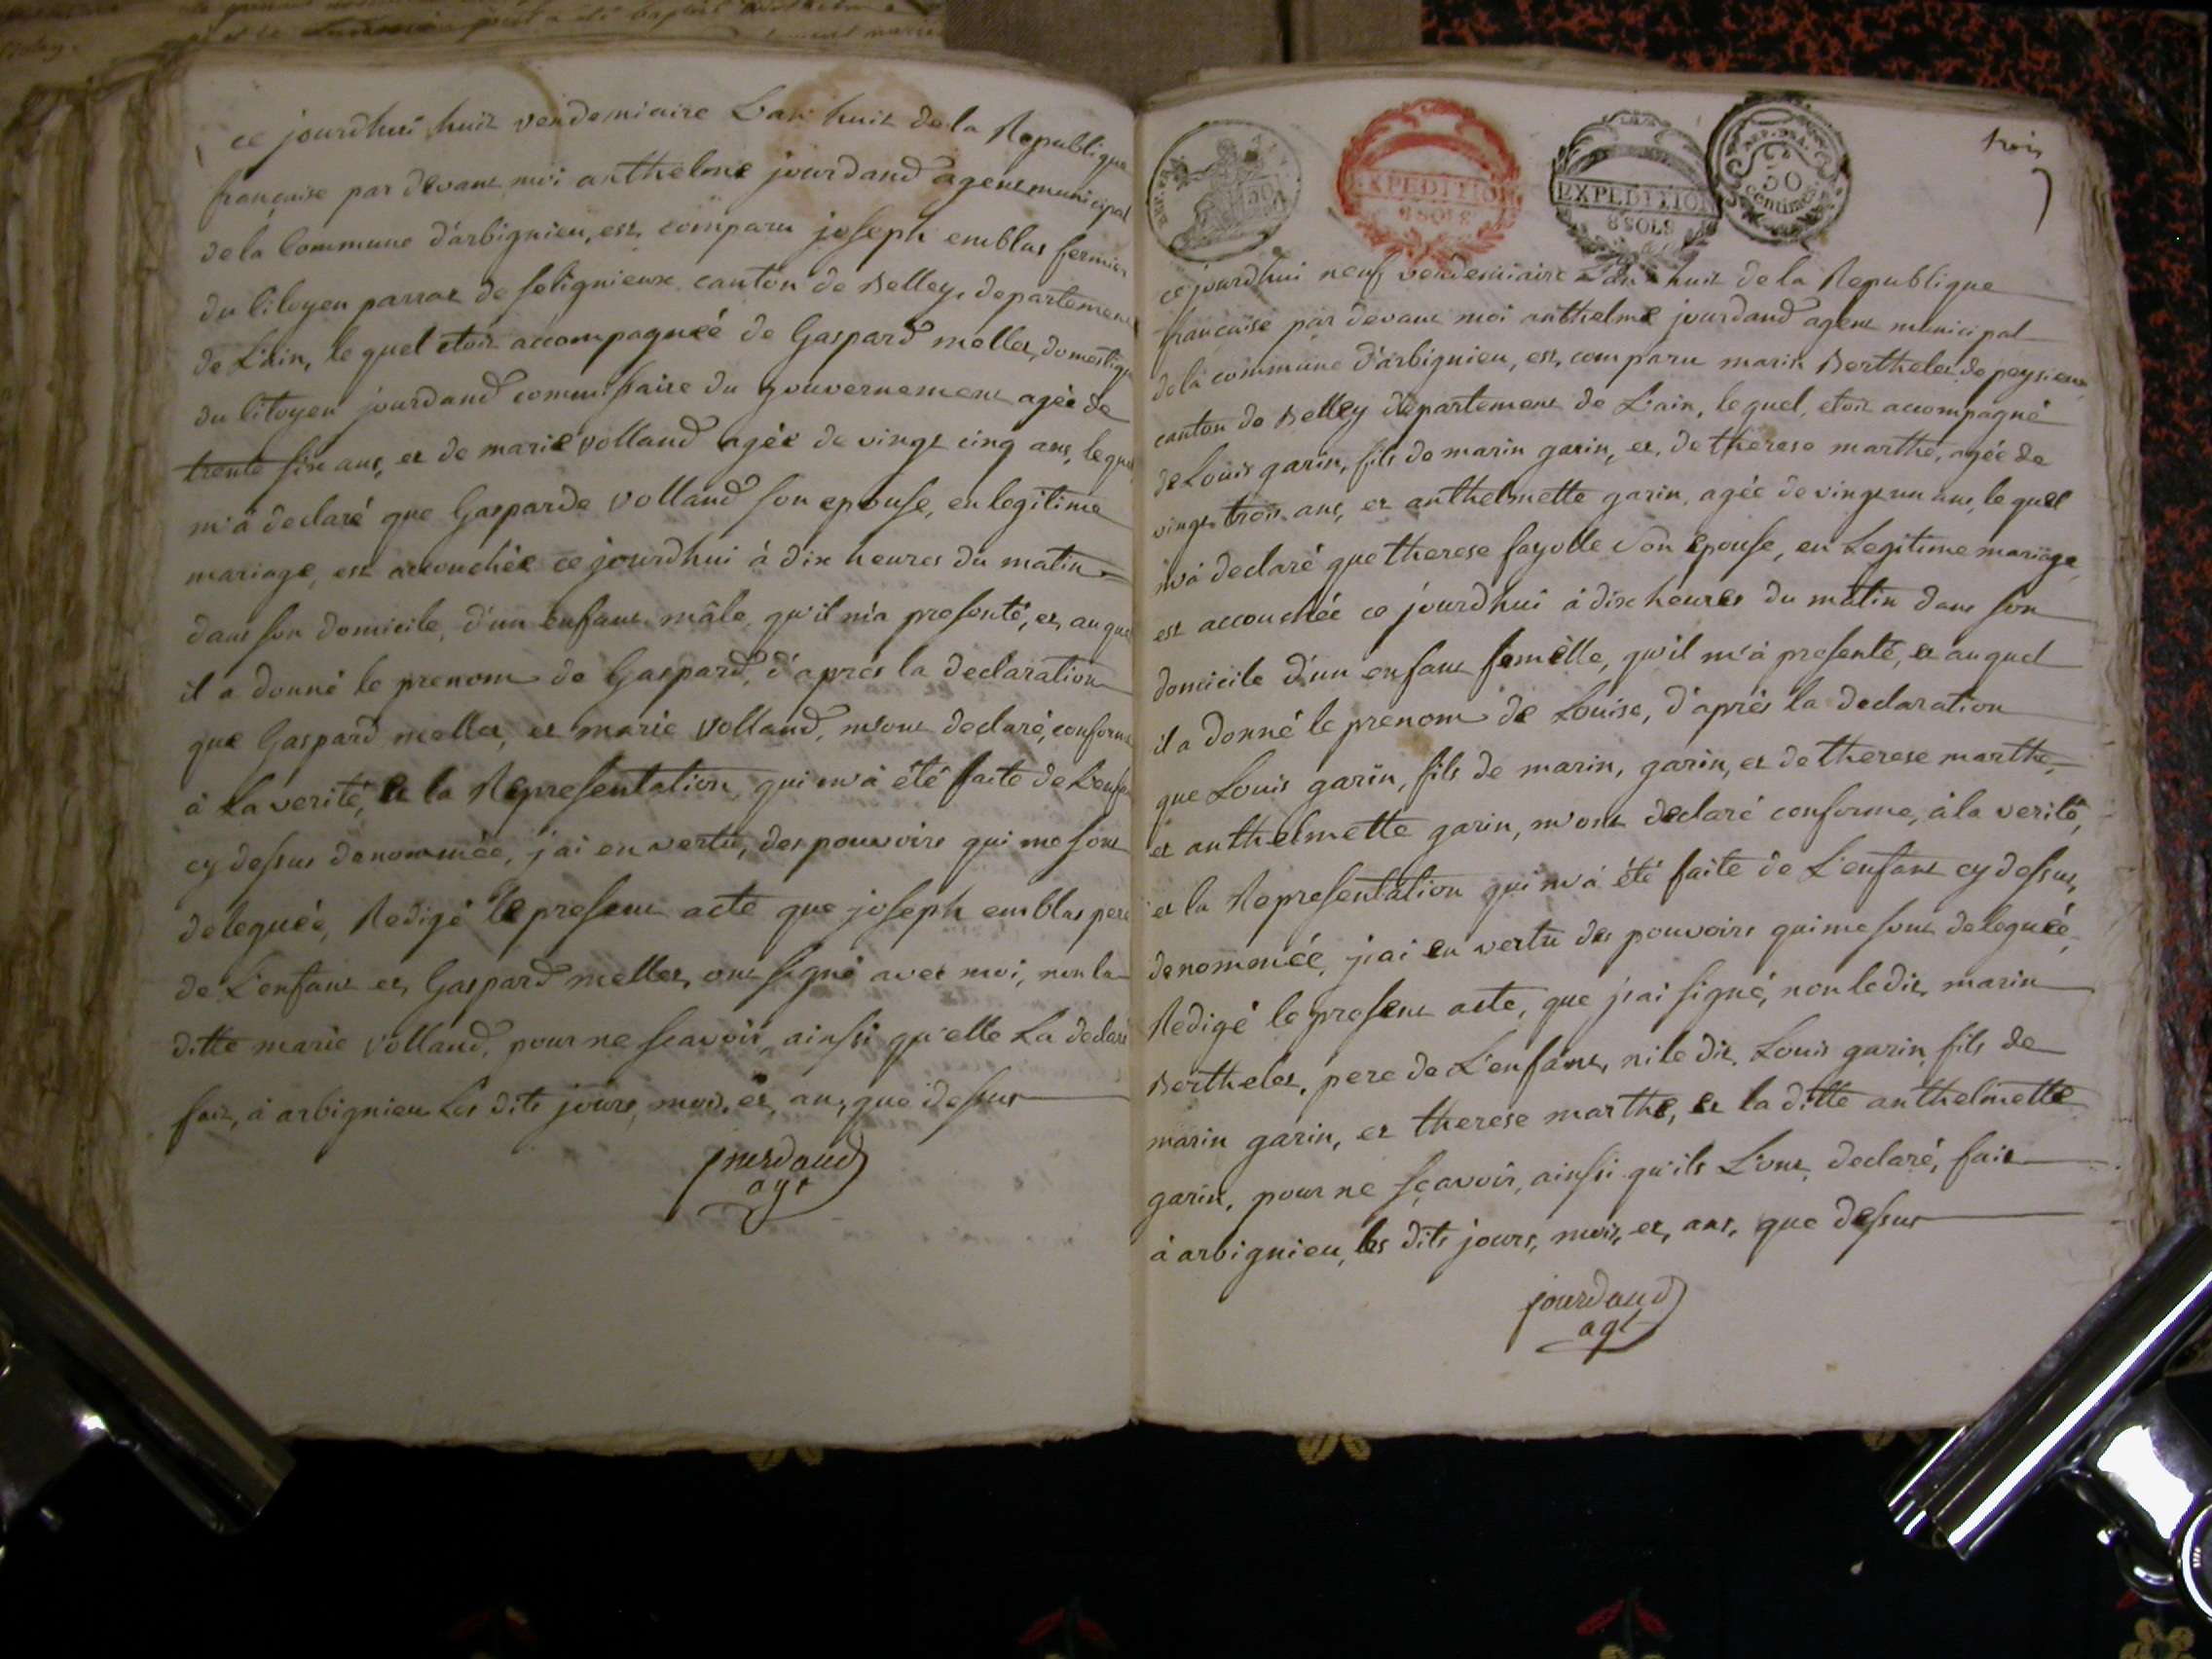 ce jourdhui huit vendemiaire L'an huit de la Republique
française par devant moi anthelme jourdand agent municipal
de la Commune d'arbignieu, est comparu joseph emblas fermier
du Citoyen parrat de Selignieux canton de Belley, departement
de L'ain, le quel etoit accompagnéé de Gaspard mollet, domestique
du Citoyen jourdand commissaire du gouvernement agéé de
trente six ans, et de marie volland agéé de vingt cinq ans, lequel
m'à declaré que Gasparde Volland son epouse, en legitime
mariage, est accouchéé ce jourdhui à dix heures du matin
dans son domicile, d'un enfant mâle, qu'il m'a presenté, et, auquel
il a donné le prenom de Gaspard, d'aprés la declaration
que Gaspard mellet, et marie Volland, m'ont declaré, conforme
à La verité, et la Representation, qui m'à été faite de L'enfant
cy dessus denommée, j'ai en vertu, des pouvoirs qui me sont
deleguéé, Redigé le present acte que joseph emblas pere
de L'enfant et, Gaspard mellet, ont signé avec moi, non la
ditte marie Volland, pour ne sçavoir, ainsi qu'elle La declaré
fait, à arbignieu Les dits jours, mois, et, an, que dessus
jourdand
agt
REP. FRA.
50
EXPEDITION
8 SOLS
EXPEDITION
8 SOLS
REP. FRA.
50
centimes
trois
ce jourdhui neuf vendemiaire L'an huit de la Republique
française par devant moi anthelme jourdand agent municipal
de la commune d'arbignieu, est, comparu marin Berthelet de peysieux
canton de Belley departement de L'ain, lequel, etoit accompagné
de Louis garin, fils de marin garin, et, de therese marthe, agéé de
vingt trois ans, et anthelmette garin, agéé de vingt un ans, le quel
m'à declaré que therese fayolle son epouse, en Legitime mariage,
est accouchéé ce jourdhui à dix heures du matin dans son
domicile d'un enfant femelle, qu'il m'à presenté, et auquel
il a donné le prenom de Louise, d'aprés la declaration
que Louis garin, fils de marin, garin, et de therese marthe,
et anthelmette garin, m'ont declaré conforme, à la verité,
et la Representation qui m'à été faite de L'enfant cy dessus,
denommée, j'ai en vertu des pouvoirs qui me sont deleguéé,
Redigé le present acte, que j'ai signé, non le dit, marin
Berthelet, pere de L'enfant, ni le dit, Louis garin, fils de
marin garin, et therese marthe, et la ditte anthelmette
garin, pour ne sçavoir, ainsi qu'ils L'ont, declaré, fait
à arbignieu, les dits jours, mois, et, ans, que dessus
jourdand
agt